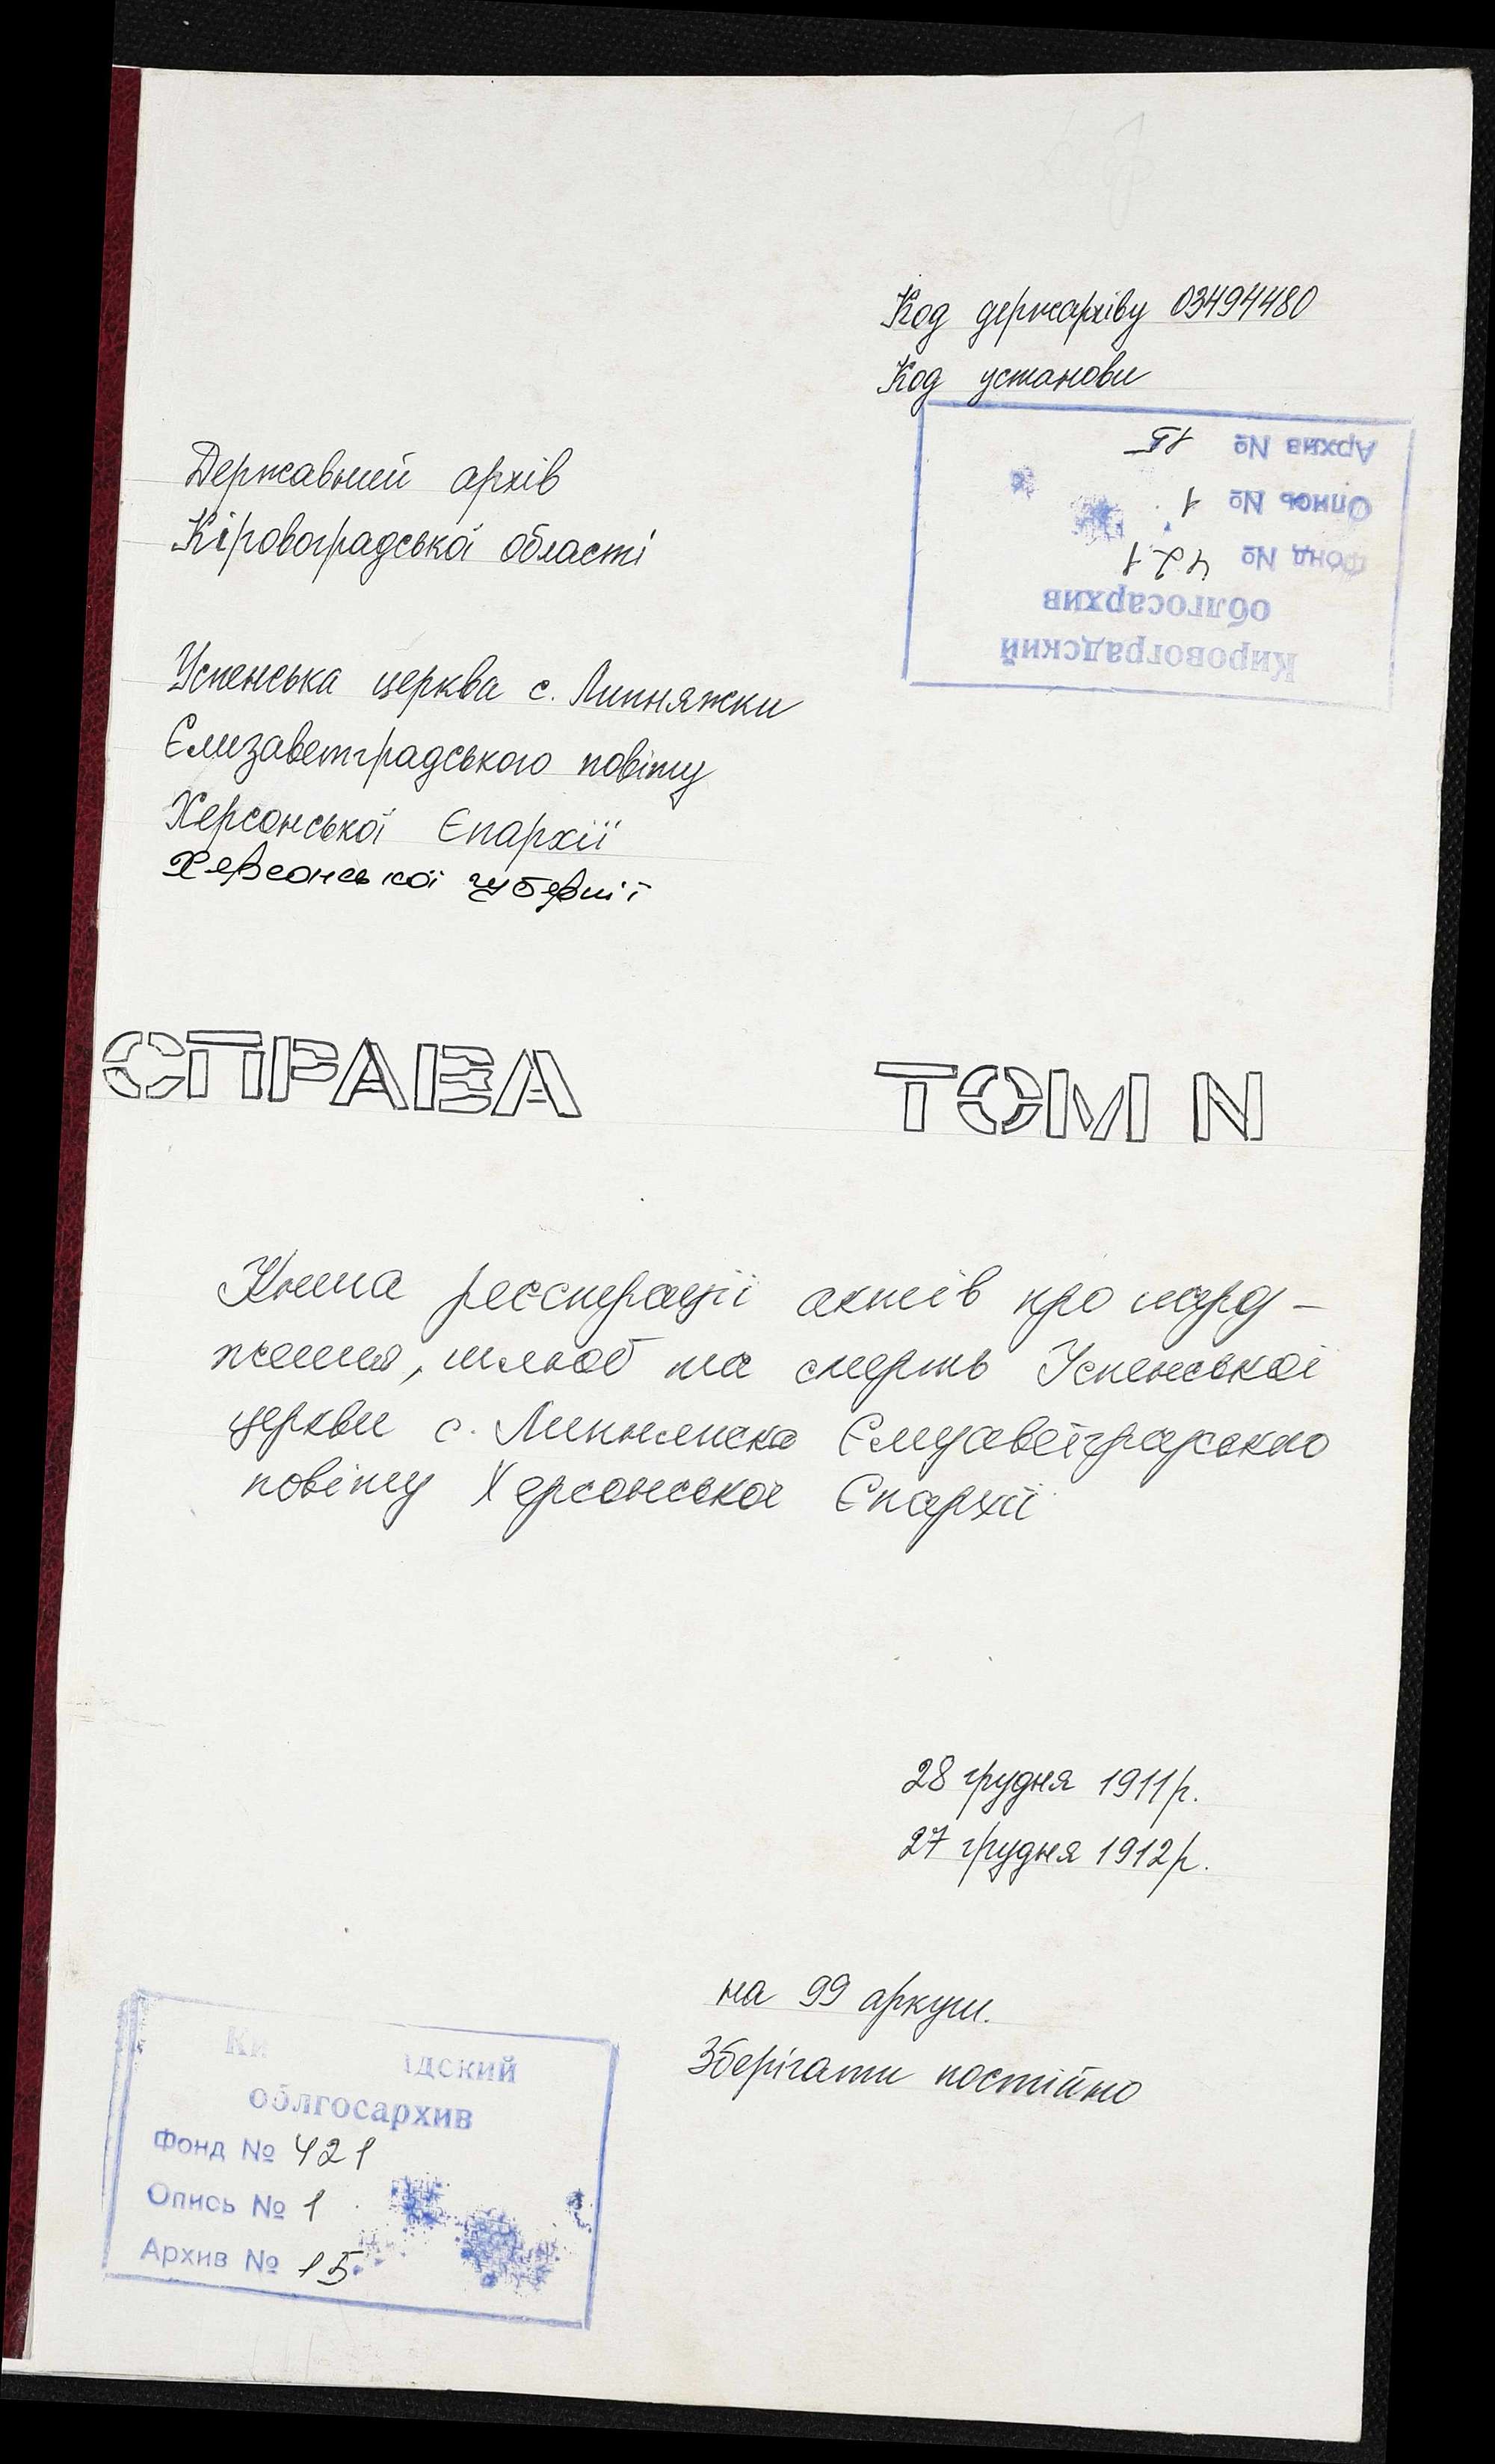 Код держархіву 03494480
Код установи
Кировоградский
облгосархив
Фонд № 421
Опись № 1
Архив № 15
Державний архів
Кіровоградської області
Успенська церква с. Липняжки
Єлизаветградського повіту
Херсонської Єпархії
Херсонської губернії
СПРАВА ТОМ N
Книга реєстрації актів про народ-
ження, шлюб та смерть Успенської
церкви с. Липняжка Єлизаветградського
повіту Херсонської Єпархії
28 грудня 1911р.
27 грудня 1912р.
на 99 аркуш.
Зберігати постійно
Ки дский
облгосархив
Фонд № 421
Опись № 1
Архив № 15